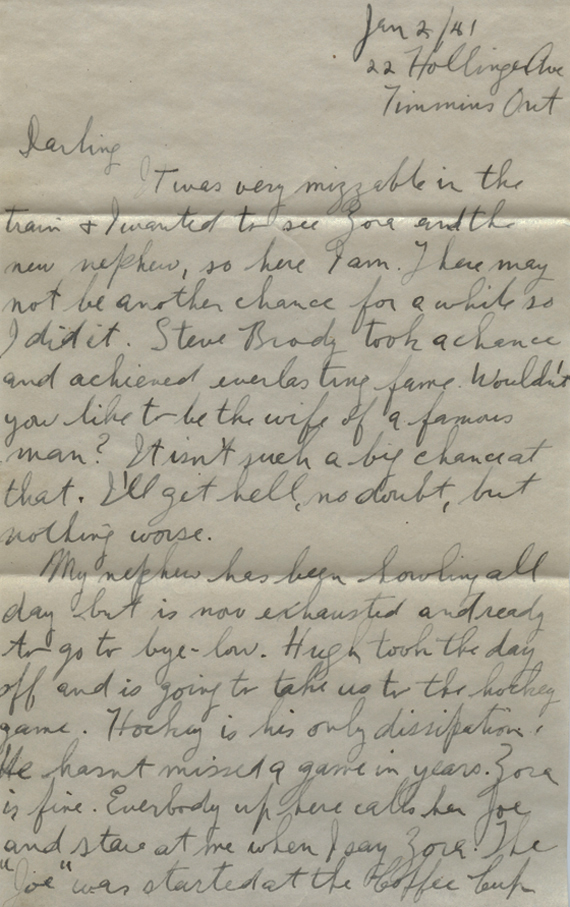 Jan 2/41
22 Hollinger Ave
Timmins Ont
Darling
It was very mizzable in the
train & I wanted to see Zora and the
new nephew, so here I am. There may
not be another chance for a while so
I did it. Steve Brody took a chance
and achieved everlasting fame. Wouldn't
you like to be the wife of a famous
man? It isn't such a big chance at
that. I'll get hell, no doubt, but
nothing worse.
My nephew has been howling all
day but is now exhausted and ready
to go to bye-low. Hugh took the day
off and is going to take us to the hockey
game. Hockey is his only dissipation.
He hasnt missed a game in years. Zora
is fine. Everbody up here calls her Joe
and stare at me when I say Zora. The
"Joe" was started at the Coffee Cup